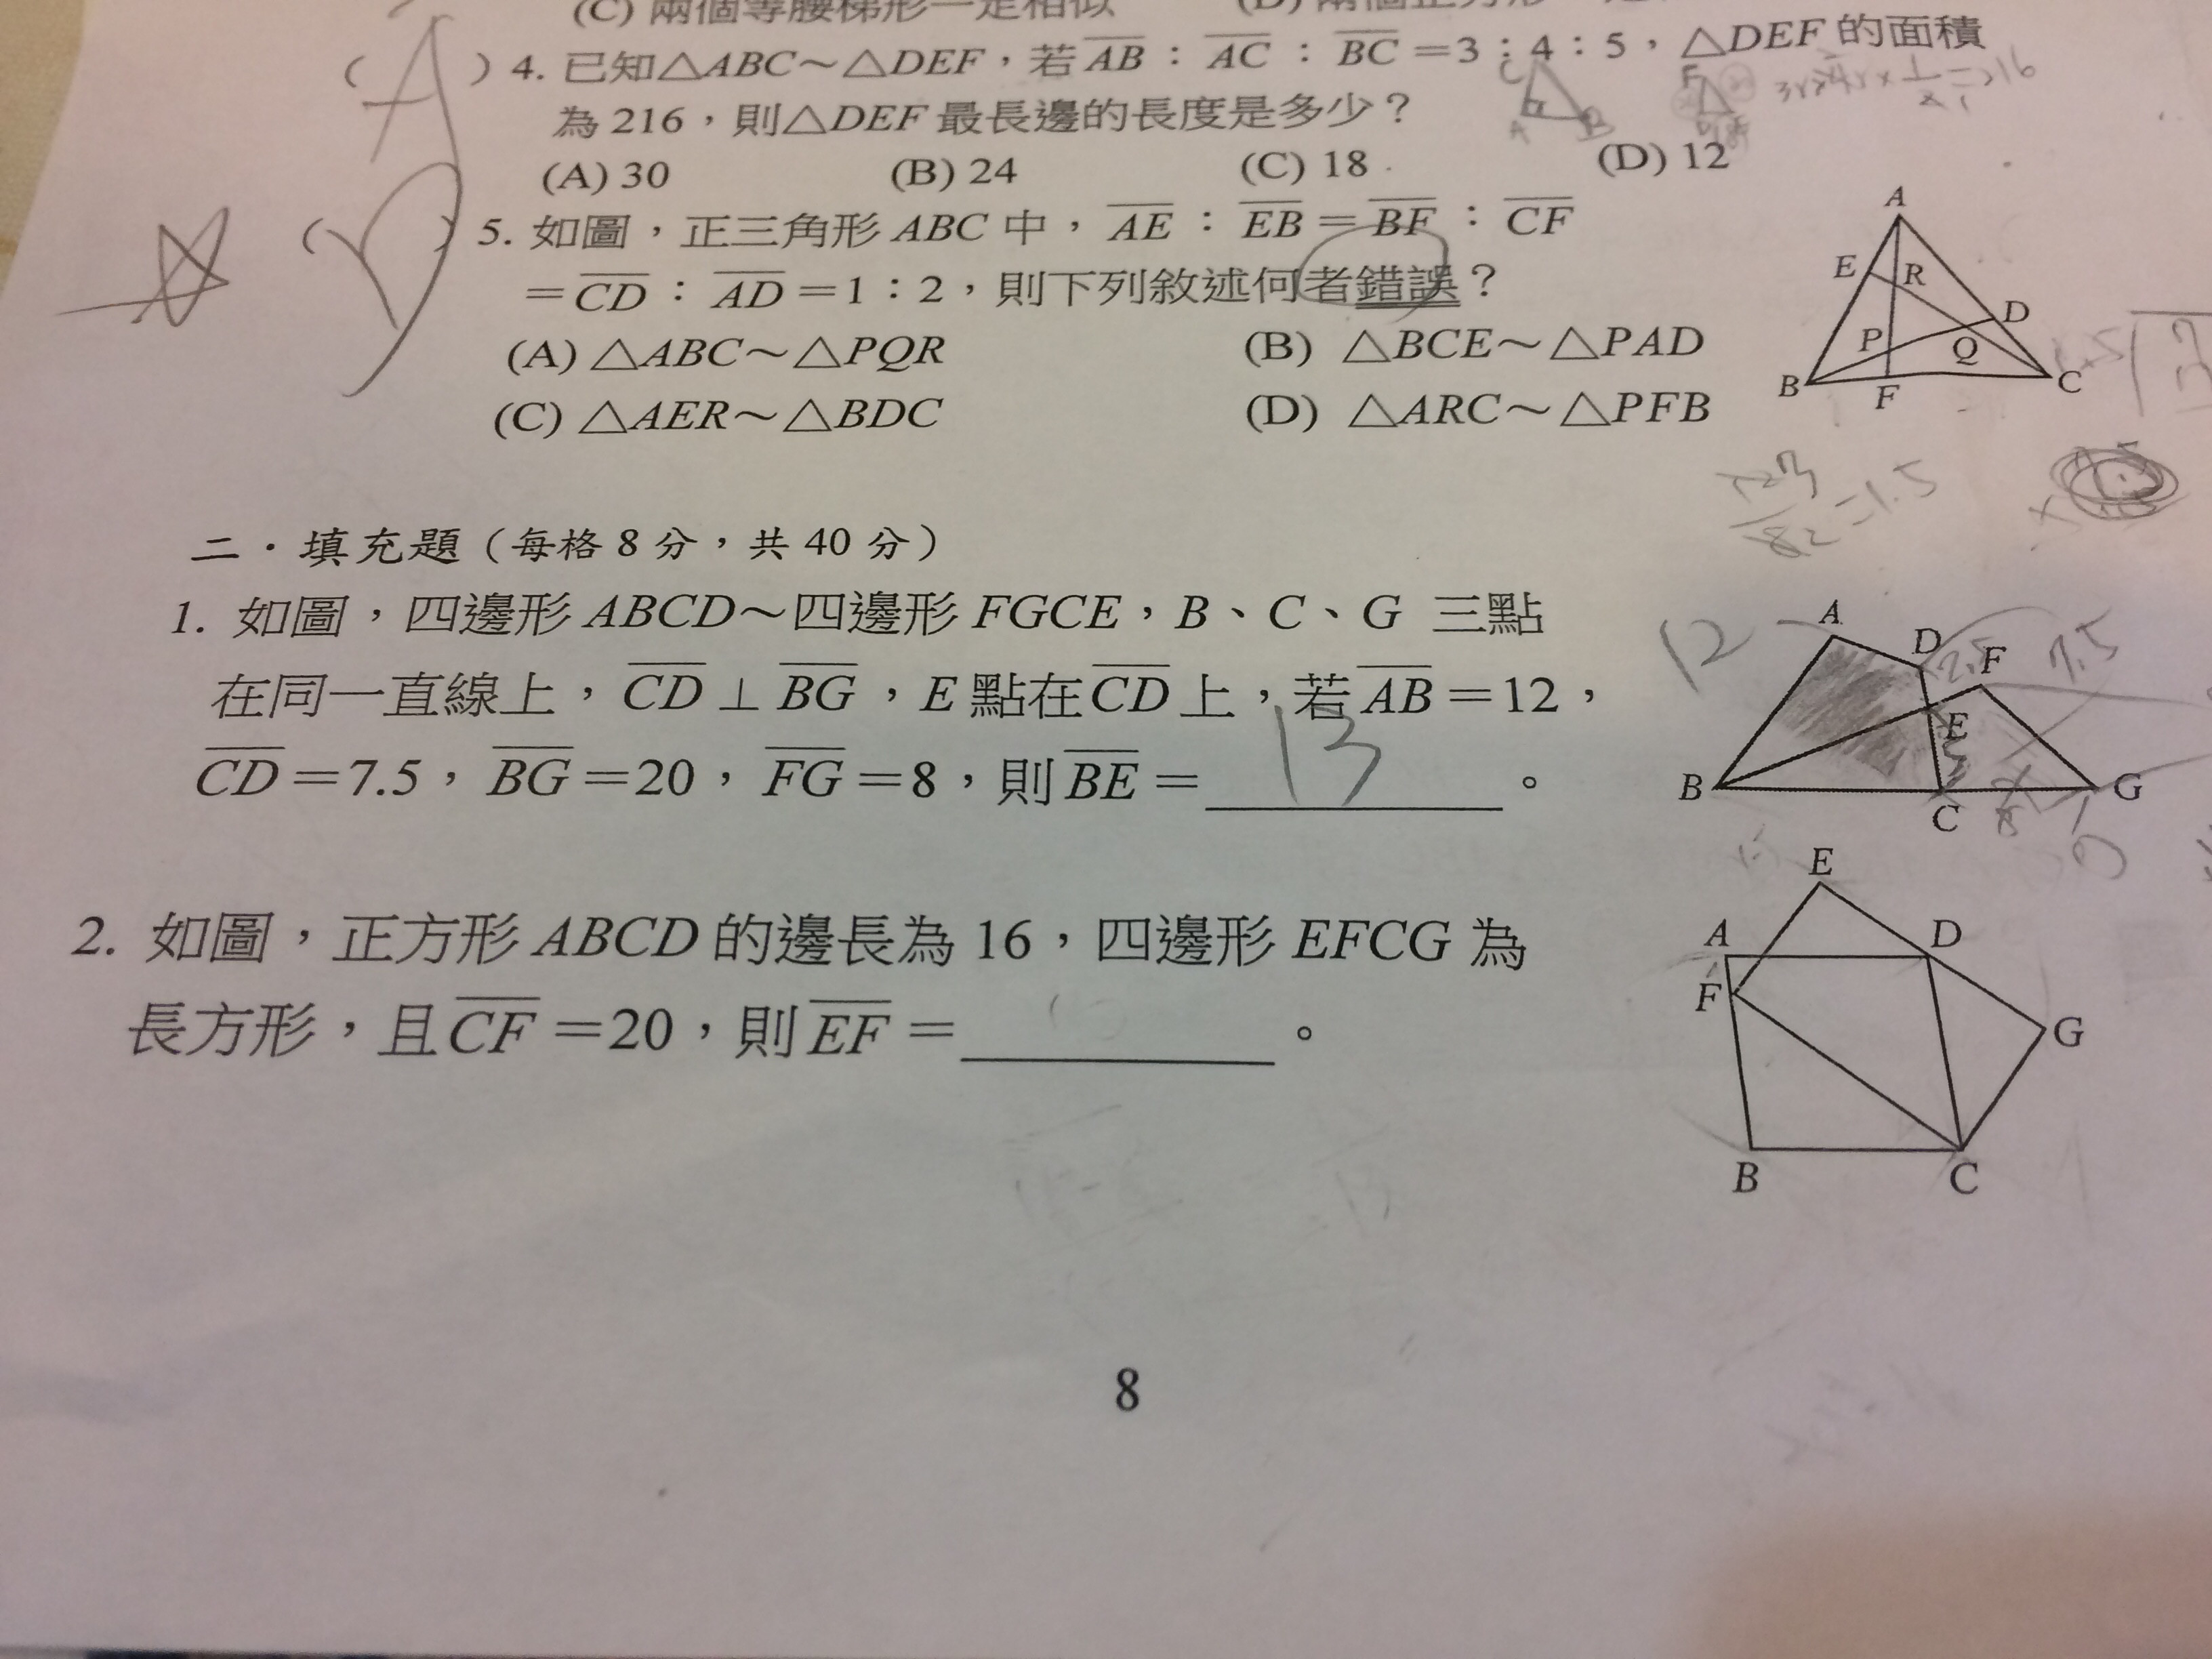 (C) 兩個等腰梯形一定相似
(D) 兩個正方形一
( A ) 4. 已知△ABC～△DEF，若AB：AC：BC＝3：4：5，△DEF 的面積
為 216，則△DEF 最長邊的長度是多少？
(A) 30 (B) 24 (C) 18 (D) 12
5. 如圖，正三角形 ABC 中，AE：EB＝BF：CF
＝CD：AD＝1：2，則下列敘述何者錯誤？
(A) △ABC～△PQR (B) △BCE～△PAD
(C) △AER～△BDC (D) △ARC～△PFB
A
E R
D
P Q
B F C
=1.5
二．填充題（每格 8 分，共 40 分）
1. 如圖，四邊形 ABCD～四邊形 FGCE，B、C、G 三點
在同一直線上，CD⊥BG，E 點在CD上，若AB＝12，
CD＝7.5，BG＝20，FG＝8，則BE＝ 13 。
12
7.5
A
D
F
E
B C G
2. 如圖，正方形 ABCD 的邊長為 16，四邊形 EFCG 為
長方形，且CF＝20，則EF＝ 。
E
A D
F
G
B C
8